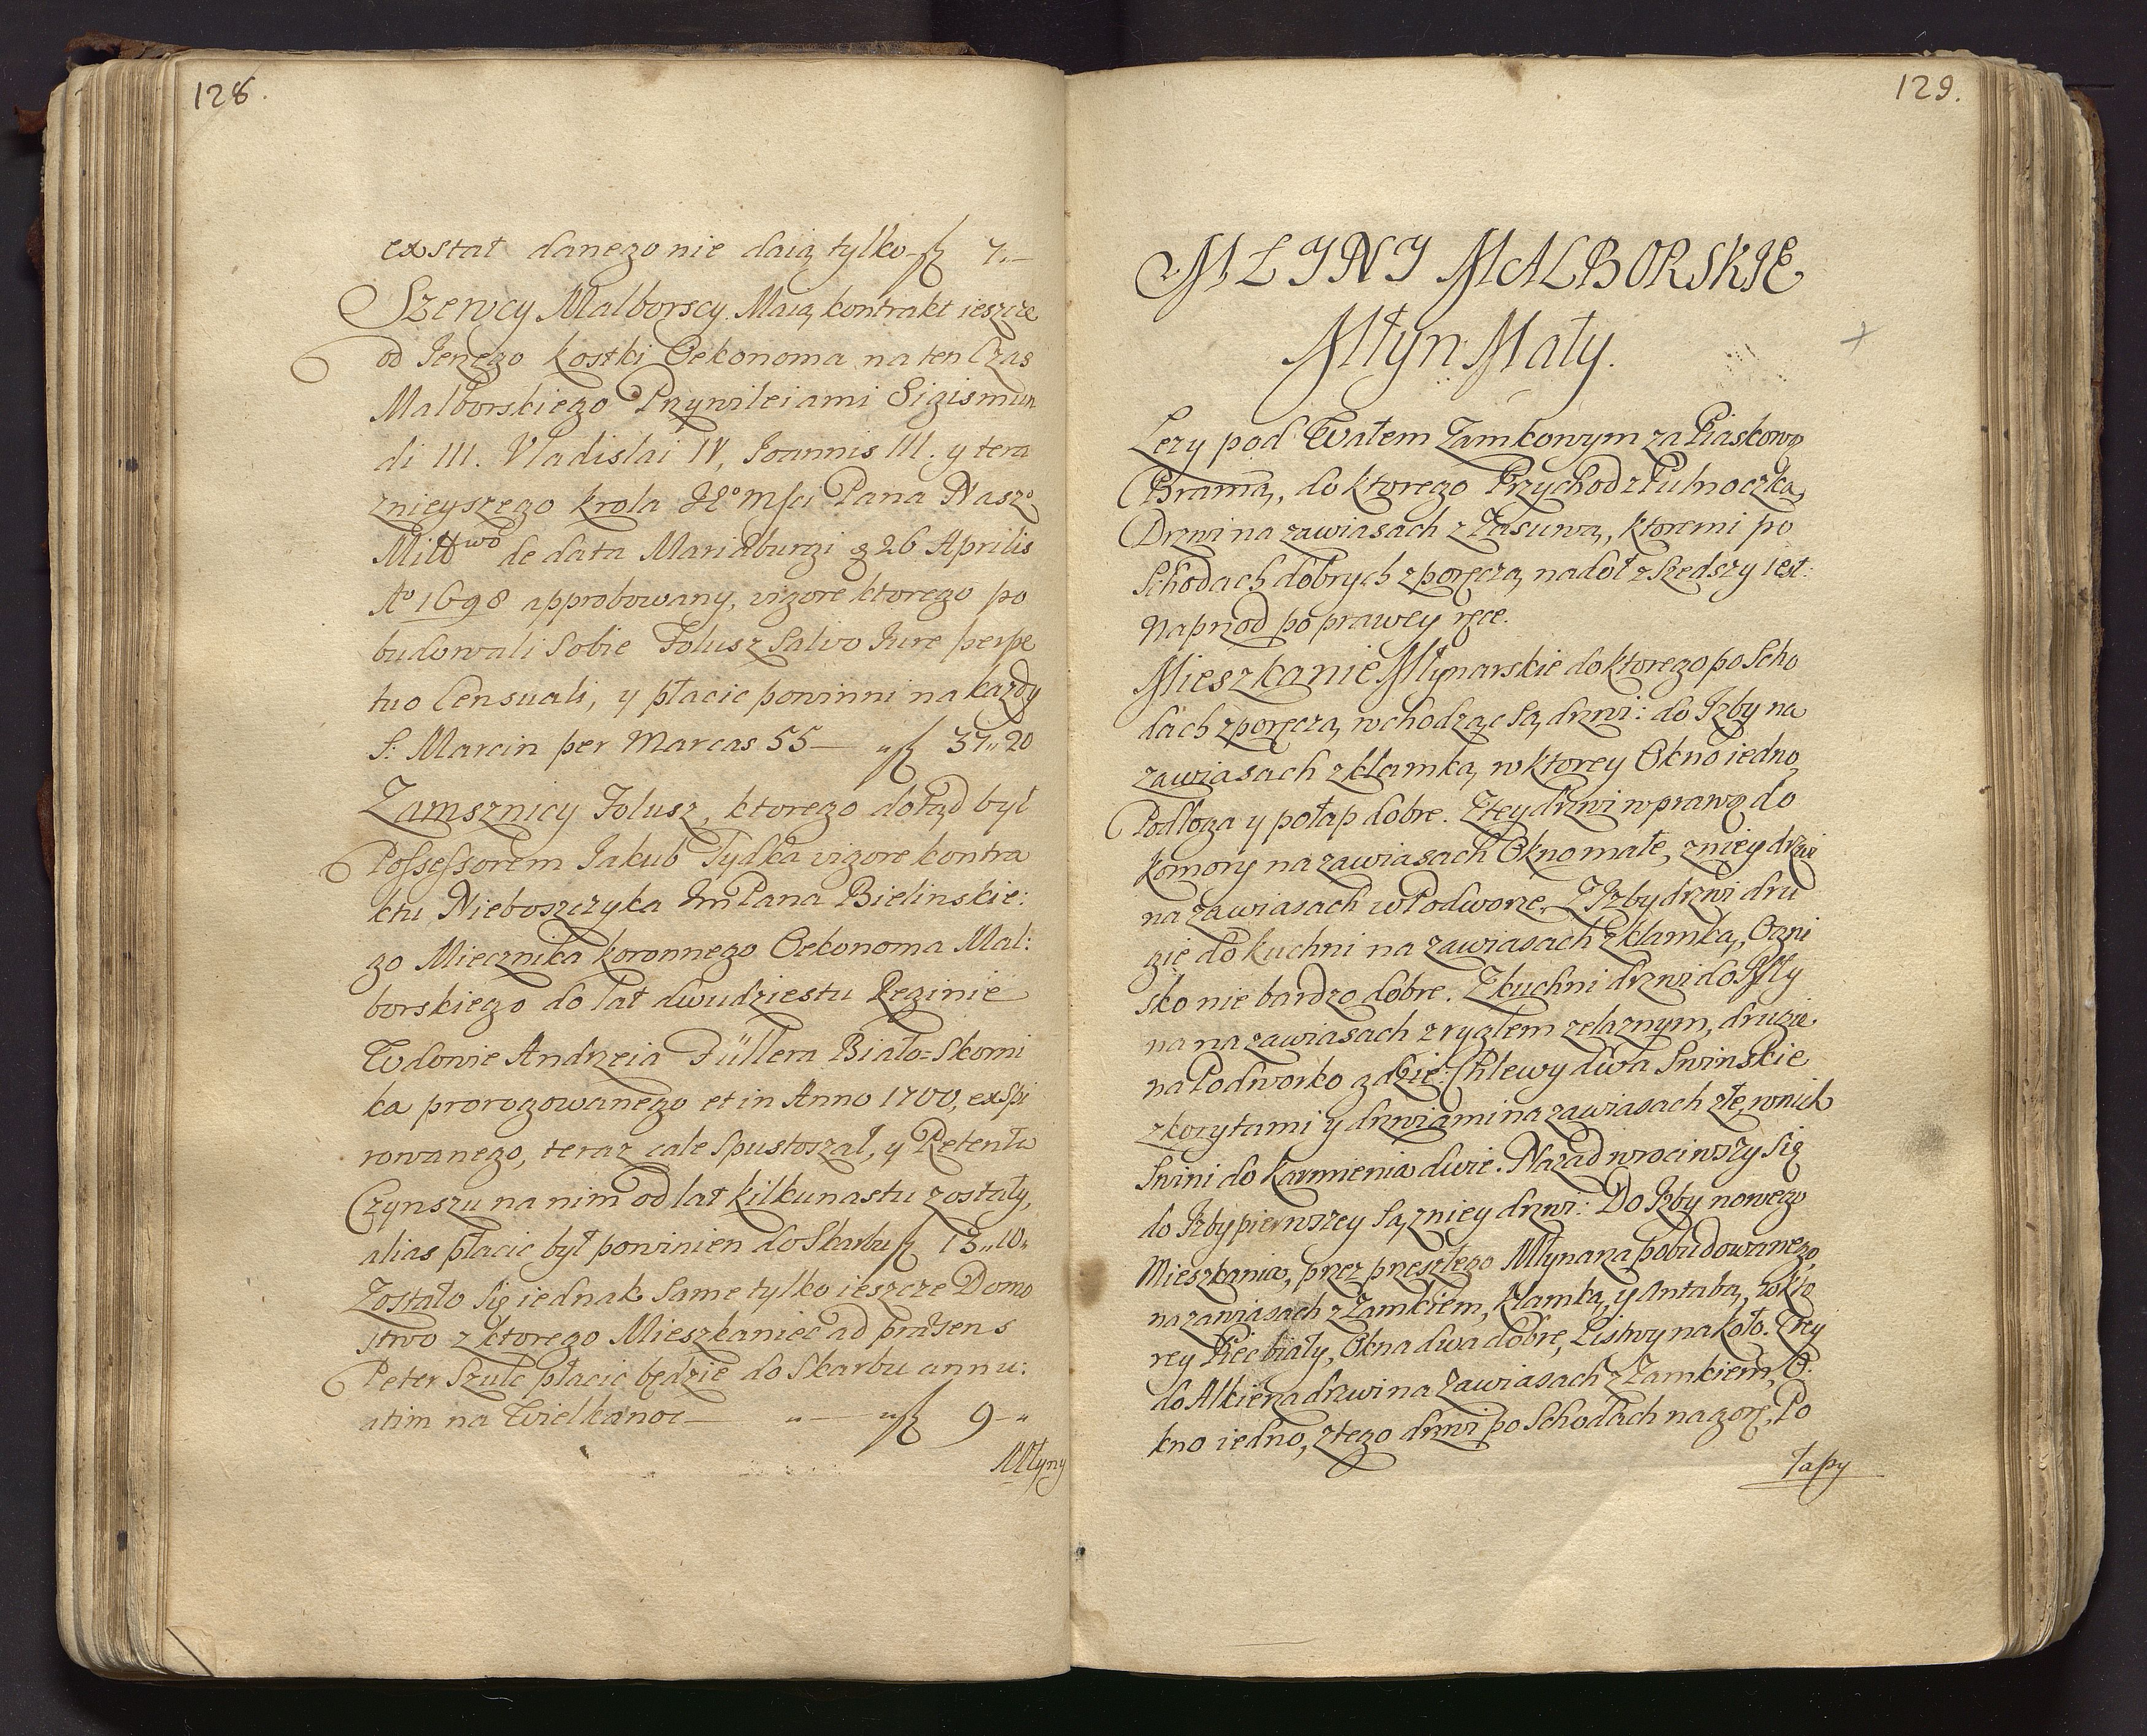 128.
exstat danego nie daią tylko fl 7.—
Szewcy Malborscy Maią kontrakt ieszcze
od Jenego Kostki Oekonoma na ten Czas
Malborskiego Przywileiami Sigismun
di III. Vladislai IV, Joannis III. y tera
znieyszego krola Jeo Msci Pana Nasze
de data Mariaeburgi g 26 Aprilis
Ao 1698 approbowany, vigore ktorego po
budowali Sobie Folusz Salvo Jure perpe
tuo Censuali, y płacic powinni na każdy
S: Marcin per Marcas 55 — " fl 37 " 20
Zamsznicy Folusz, ktorego dotąd był
Possessorem Jakub Tydka vigore kontra
ktu Nieboszczyka Jm Pana Bielinskie:
go Miecznika koronnego Oekonoma Mal:
borskiego do lat dwudziestu Reginie
Wdowie Andrzeia Füllera Biało=Skorni
ka prorogowanego et in Anno 1700, exspi
rowanego, teraz cale Spustoszał, y Retenta
Czynszu na nim od lat kilkunastu zostały,
alias płacic był powinien do Skarbu fl 13 " 10 "
Zostało Się iednak Same tylko ieszcze Domo
stwo z ktorego Mieszkaniec ad praesens
Peter Szulc płacic będzie do Skarbu annu:
atim na Wielkanoc — " — " fl 9 — "
Młyny
129.
MŁYNY MALBORSKIE
Młyn Mały.
Lezy pod Wałem Zamkowym za Piaskową
Bramą, do ktorego Przychod z Pułnoczką
Drzwi na zawiasach z Zasuwą, ktoremi po
Schodach dobrych z poręczą, na doł zszedszy iest:
Naprzod po prawey ręce.
Mieszkanie Młynarskie do ktorego po Scho
dach z poręczą, wchodząc Są, drzwi: do Izby na
zawiasach z klamką, w ktorey Okno iedno,
Podłoga y połap dobre. Z tey drzwi w prawo do
Komory na zawiasach Okno małe, z niey drzwi
na zawiasach w Podworze. Z Izby drzwi dru
gie do kuchni na zawiasach z klamką, Ogni
sko nie bardzo dobre. Z kuchni drzwi do Mły
na na zawiasach z ryglem zelaznym, drugie
na Podworko gdzie: Chlewy dwa Swinskie
z korytami y drzwiami na zawiasach złe, w nich
Swini do karmienia dwie. Nazad wrociwszy Się
do Izby pierwszey Są, z niey drzwi: Do Izby nowego
Mieszkania, przez przeszłego Młynarza pobudowanego,
na zawiasach z Zamkiem, Klamką, y Antabą, w kto
rey Piec biały, Okna dwa dobre, Listwy na koło. Z tey
do Alkierza drzwi na Zawiasach z Zamkiem, O:
kno iedno, z tego drzwi po Schodach na gorę, Po
łapy